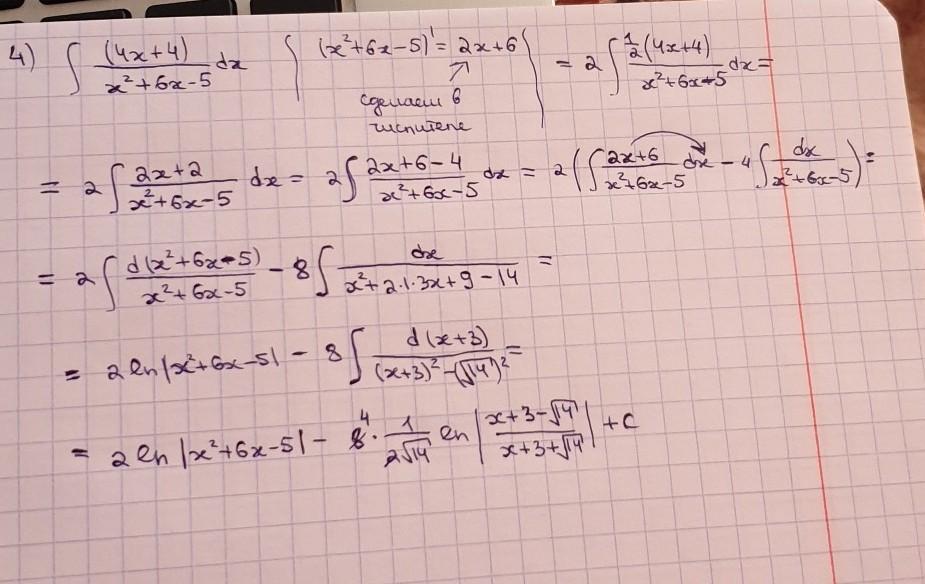 4) ∫ (4x+4)/(x²+6x-5) dx { (x²+6x-5)' = 2x+6 } = 2∫ ½(4x+4)/(x²+6x-5) dx =
сделаем в
числителе
= 2∫ (2x+2)/(x²+6x-5) dx = 2∫ (2x+6-4)/(x²+6x-5) dx = 2(∫ (2x+6)/(x²+6x-5) dx - 4∫ dx/(x²+6x-5)) =
= 2∫ d(x²+6x-5)/(x²+6x-5) - 8∫ dx/(x²+2·1·3x+9-14) =
= 2 ln|x²+6x-5| - 8∫ d(x+3)/((x+3)²-(√14)²) =
= 2 ln|x²+6x-5| - 8 4 · 1/(2√14) ln |(x+3-√14)/(x+3+√14)| + C